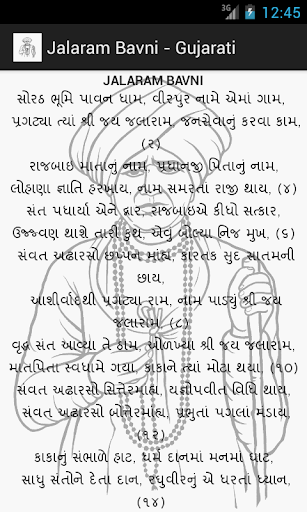 3G 12:45
Jalaram Bavni - Gujarati
JALARAM BAVNI
સોરઠ ભૂમિ પાવન ધામ, વીરપુર નામે એમાં ગામ,
પ્રગટ્યા ત્યાં શ્રી જય જલારામ, જનસેવાનું કરવા કામ,
(૨)
રાજબાઇ માતાનું નામ, પ્રધાનજી પિતાનું નામ,
લોહાણા જ્ઞાતિ હરખાય, નામ સમરતાં રાજી થાય, (૪)
સંત પધાર્યા એને દ્વાર, રાજબાઇએ કીધો સત્કાર,
ઉજ્જવણ થાશે તારી કુંથ, એવું બોલ્યા નિજ મુખ, (૬)
સંવત અઢારસો છપ્પન માંહ્ય, કારતક સુદ સાતમની
છાય,
આશીર્વાદથી પ્રગટ્યા રામ, નામ પાડ્યું શ્રી જય
જલારામ, (૮)
વૃદ્ધ સંત આવ્યા તે ઠામ, ઓળખ્યા શ્રી જય જલારામ,
માતપિતા સ્વધામે ગયા, કાકાને ત્યાં મોટા થયા, (૧૦)
સંવત અઢારસો સિત્તેરમાંહ્ય, યજ્ઞોપવીત વિધિ થાય,
સંવત અઢારસો બોત્તેરમાંહ્ય, પ્રભુતાં પગલાં મંડાય,
(૧૨)
કાકાનું સંભાળે હાટ, ધર્મ દાનમાં મનમાં ઘાટ,
સાધુ સંતોને દેતા દાન, રઘુવીરનું એ ધરતાં ધ્યાન,
(૧૪)